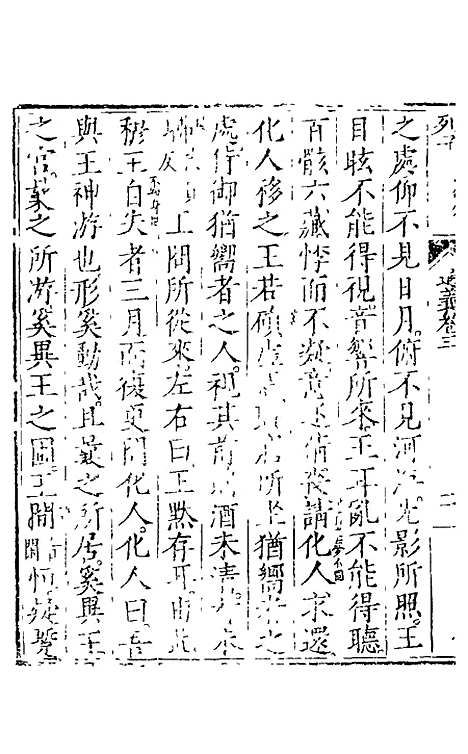 列子
通義卷三
之處仰不見日月俯不見河海光影所照王
目眩不能得視音響所來王耳亂不能得聽
百骸六藏悸而不凝意迷精喪請化人求還
化人移之王若殞虛焉既寤所坐猶嚮者之
處侍御猶嚮者之人視其前則酒未清肴未
王問所從來左右曰王默存耳由此
穆王自失者三月而復更問化人化人曰吾
與王神游也形奚動哉且曩之所居奚異王
之宮曩之所游奚異王之圃王閒恒疑蹔